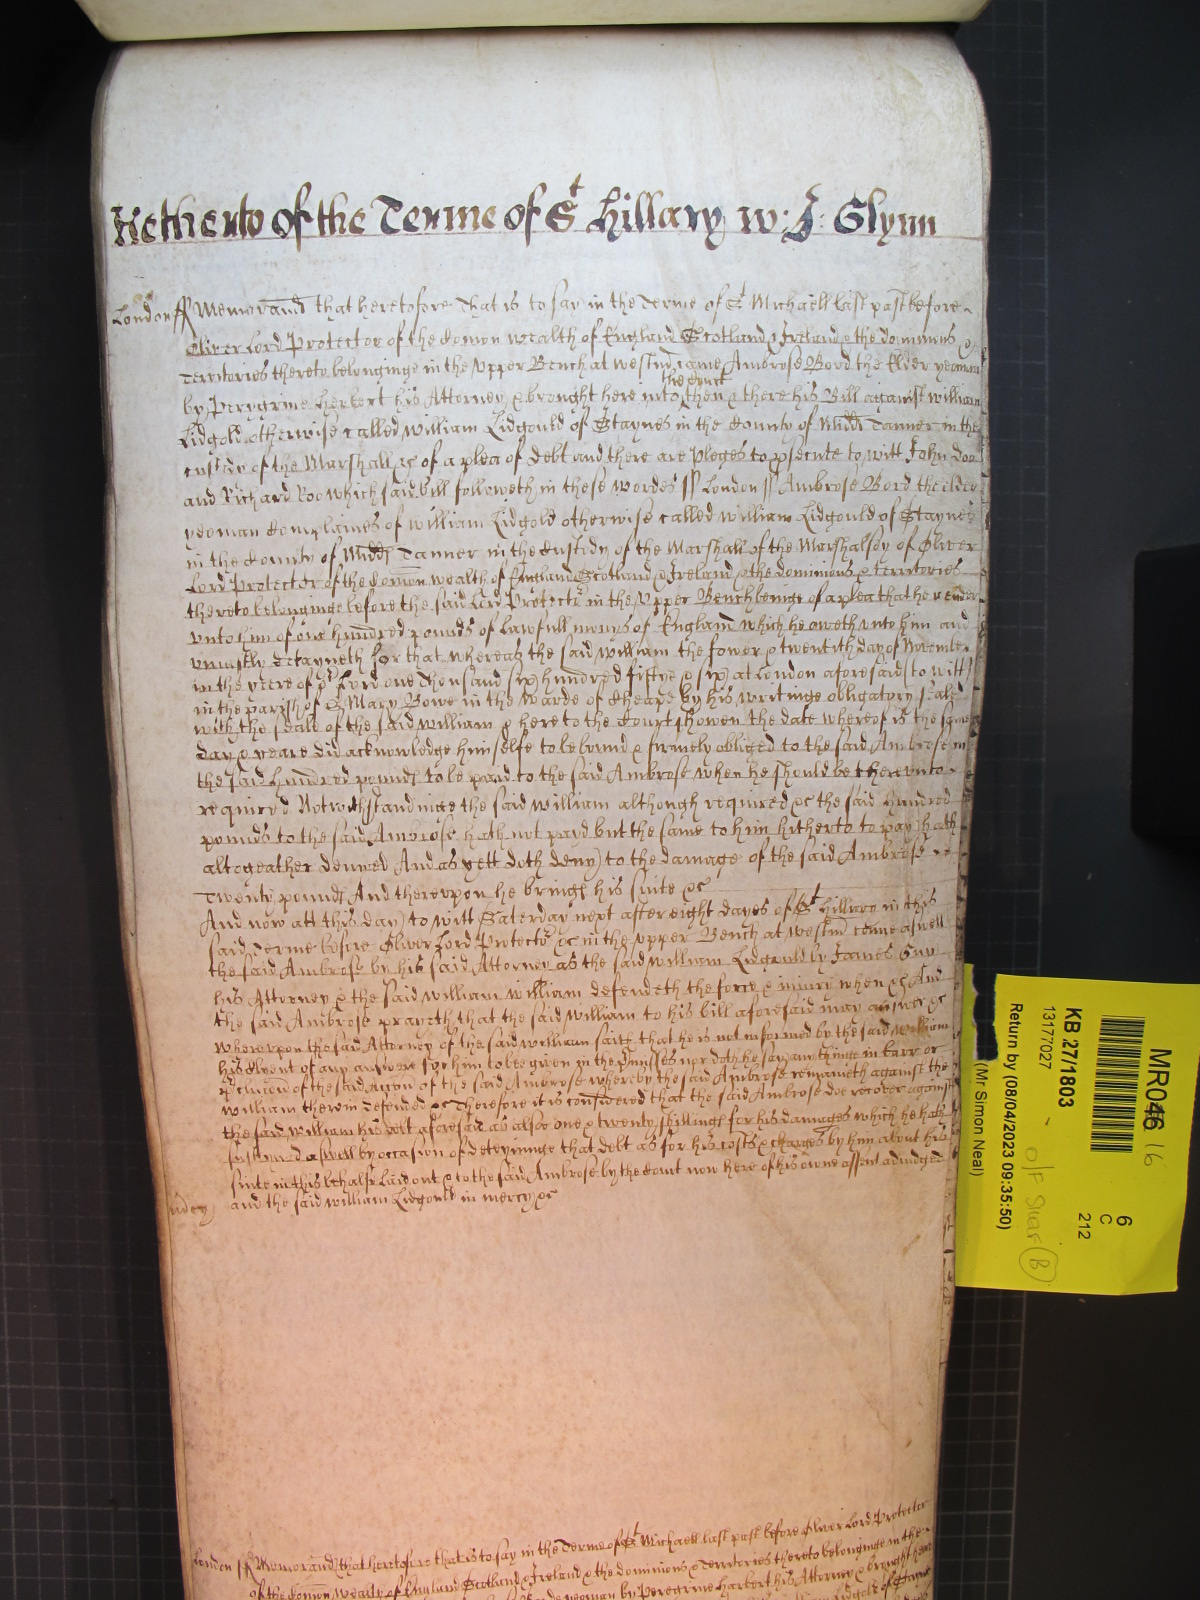 Hetherto of the Terme of St Hillary w: J: Glynn
London ss Memorand that heretofore That is to say in the Terme of St Michaell last past before
Oliver Lord Protector of the Comon wealth of England Scotland & Ireland & the dominions &
Territories thereto belonginge in the Upper Bench at Westm came Ambrose Bord the Elder yeoman
the Court
by Perygrine Herbert his Attorney & brought here into then & there his Bill against William
Lidgold otherwise called William Lidgould of Staynes in the County of Midds Tanner in the
custody of the Marshall &c of a plea of debt and there are Pleges to psecute to witt John Doo
and Richard Roo which said bill followeth in these wordes ss London ss Ambrose Bord the elder
yeoman Complaines of William Lidgold otherwise called William Lidgould of Staynes
in the County of Midds Tanner in the Custody of the Marshall of the Marshalsey of Oliver
Lord Protector of the Comon wealth of England Scotland & Ireland & the dominions & territories
thereto belonginge before the said Lord Protector in the Upper Bench beinge of a plea that he render
unto him of one hundred pounds of lawfull monys of England which he oweth unto him and
uniustly detayneth For that whereas the said William the fower & twentith day of November
in the yeere of or Lord one Thousand six hundred fiftye & six at London aforesaid (to witt)
in the parish of St Mary Bowe in the Warde of Cheape by his writinge obligatory sealed
with the seale of the said William & here to the Court showen the date whereof is the same
day & yeare did acknowledge himselfe to be bound & firmely obliged to the said Ambrose in
the said hundred pounds to be paid to the said Ambrose when he should be thereunto
required Notwithstandinge the said William although required &c the said hundred
pounds to the said Ambrose hath not payd but the same to him hitherto to pay hath
altogeather denied And as yett doth deny) to the damage of the said Ambrose
Twenty pounds And thereupon he brings his suite &c
And now att this day) to witt Saterday next after eight dayes of St Hillary in this
said Terme before Oliver Lord Protector &c in the Upper Bench at Westm come aswell
the said Ambrose by his said Attorney as the said William Lidgould by James Guy
his Attorney & the said William William defendeth the force & iniury when &c And
the said Ambrose prayeth that the said William to his bill aforesaid may answer &c
whereupon the said Attorney of the said William saith that he is not informed by the said William
his Clyent of any answere for him to be given in the pmisses nor doth he say any thinge in barr or
pclusion of the said accon of the said Ambrose whereby the said Ambrose remaineth against the
William therein defended &c Therefore it is considered that the said Ambrose doe recover against
the said William his debt aforesaid as alsoe one & twenty shillings for his damages which he hath
susteined aswell by occasion of deteyninge that debt as for his costs & charges by him about his
suite in this behalfe laid out & to the said Ambrose by the Court now here of his owne assent adiudged
and the said William Lidgould in mercy &c
London ss Memorand that heretofore that is to say in the Terme of St Michaell last past before Oliver Lord Protector
of the Comon wealth of England Scotland & Ireland & the dominions & Territories thereto belonginge in the
yeoman by Peregrine Harbert his Attorney & brought here
Lidgold of Staynes
MR046 16
6
C
212
KB 27/1803
13177027
O/F Shar B
Return by (08/04/2023 09:35:50)
(Mr Simon Neal)